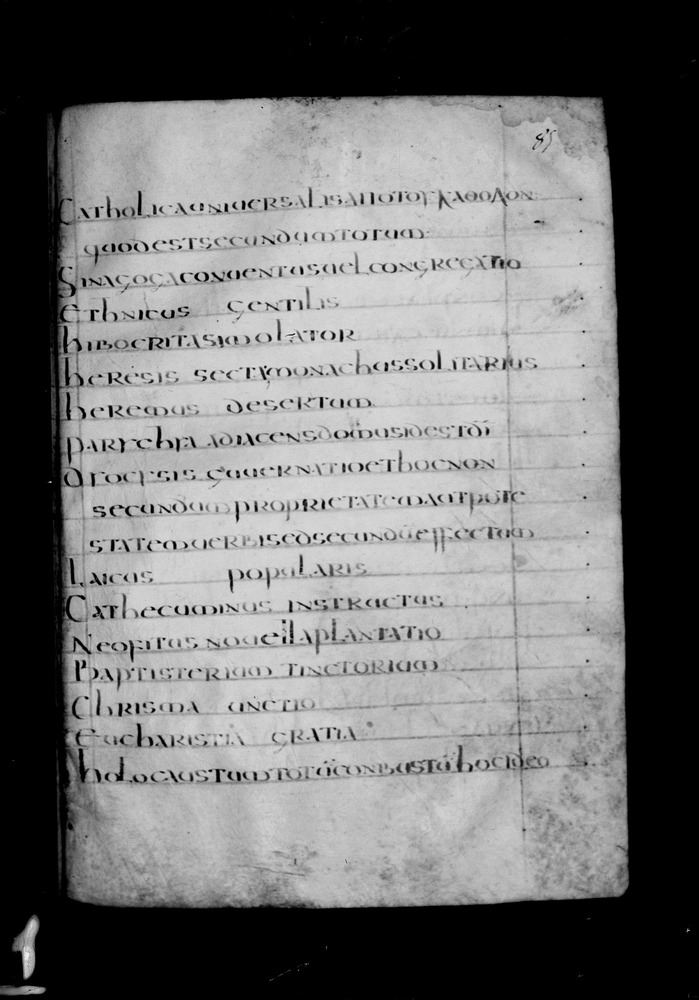 85
Catholica universalis ΑΠΟΤΟΥ ΚΑΘΟΛΟΝ
quod est secundum totum
Sinagoga conventus vel congregatio
Ethnicus gentilis
hipocrita simolator
heresis secta monachus solitarius
heremus desertum
parrchia adiacens domus id est dī
Diocesis guvernatio et hoc non
secundum proprietatem aut pote
statem verbi sed secundū effectum
Laicus popularis
Cathecuminus instructus
Neofitus novella plantatio
Baptisterium tinctorium
Chrisma unctio
Eucharistia gratia
holocaustum totū conbustū hoc ideo
1